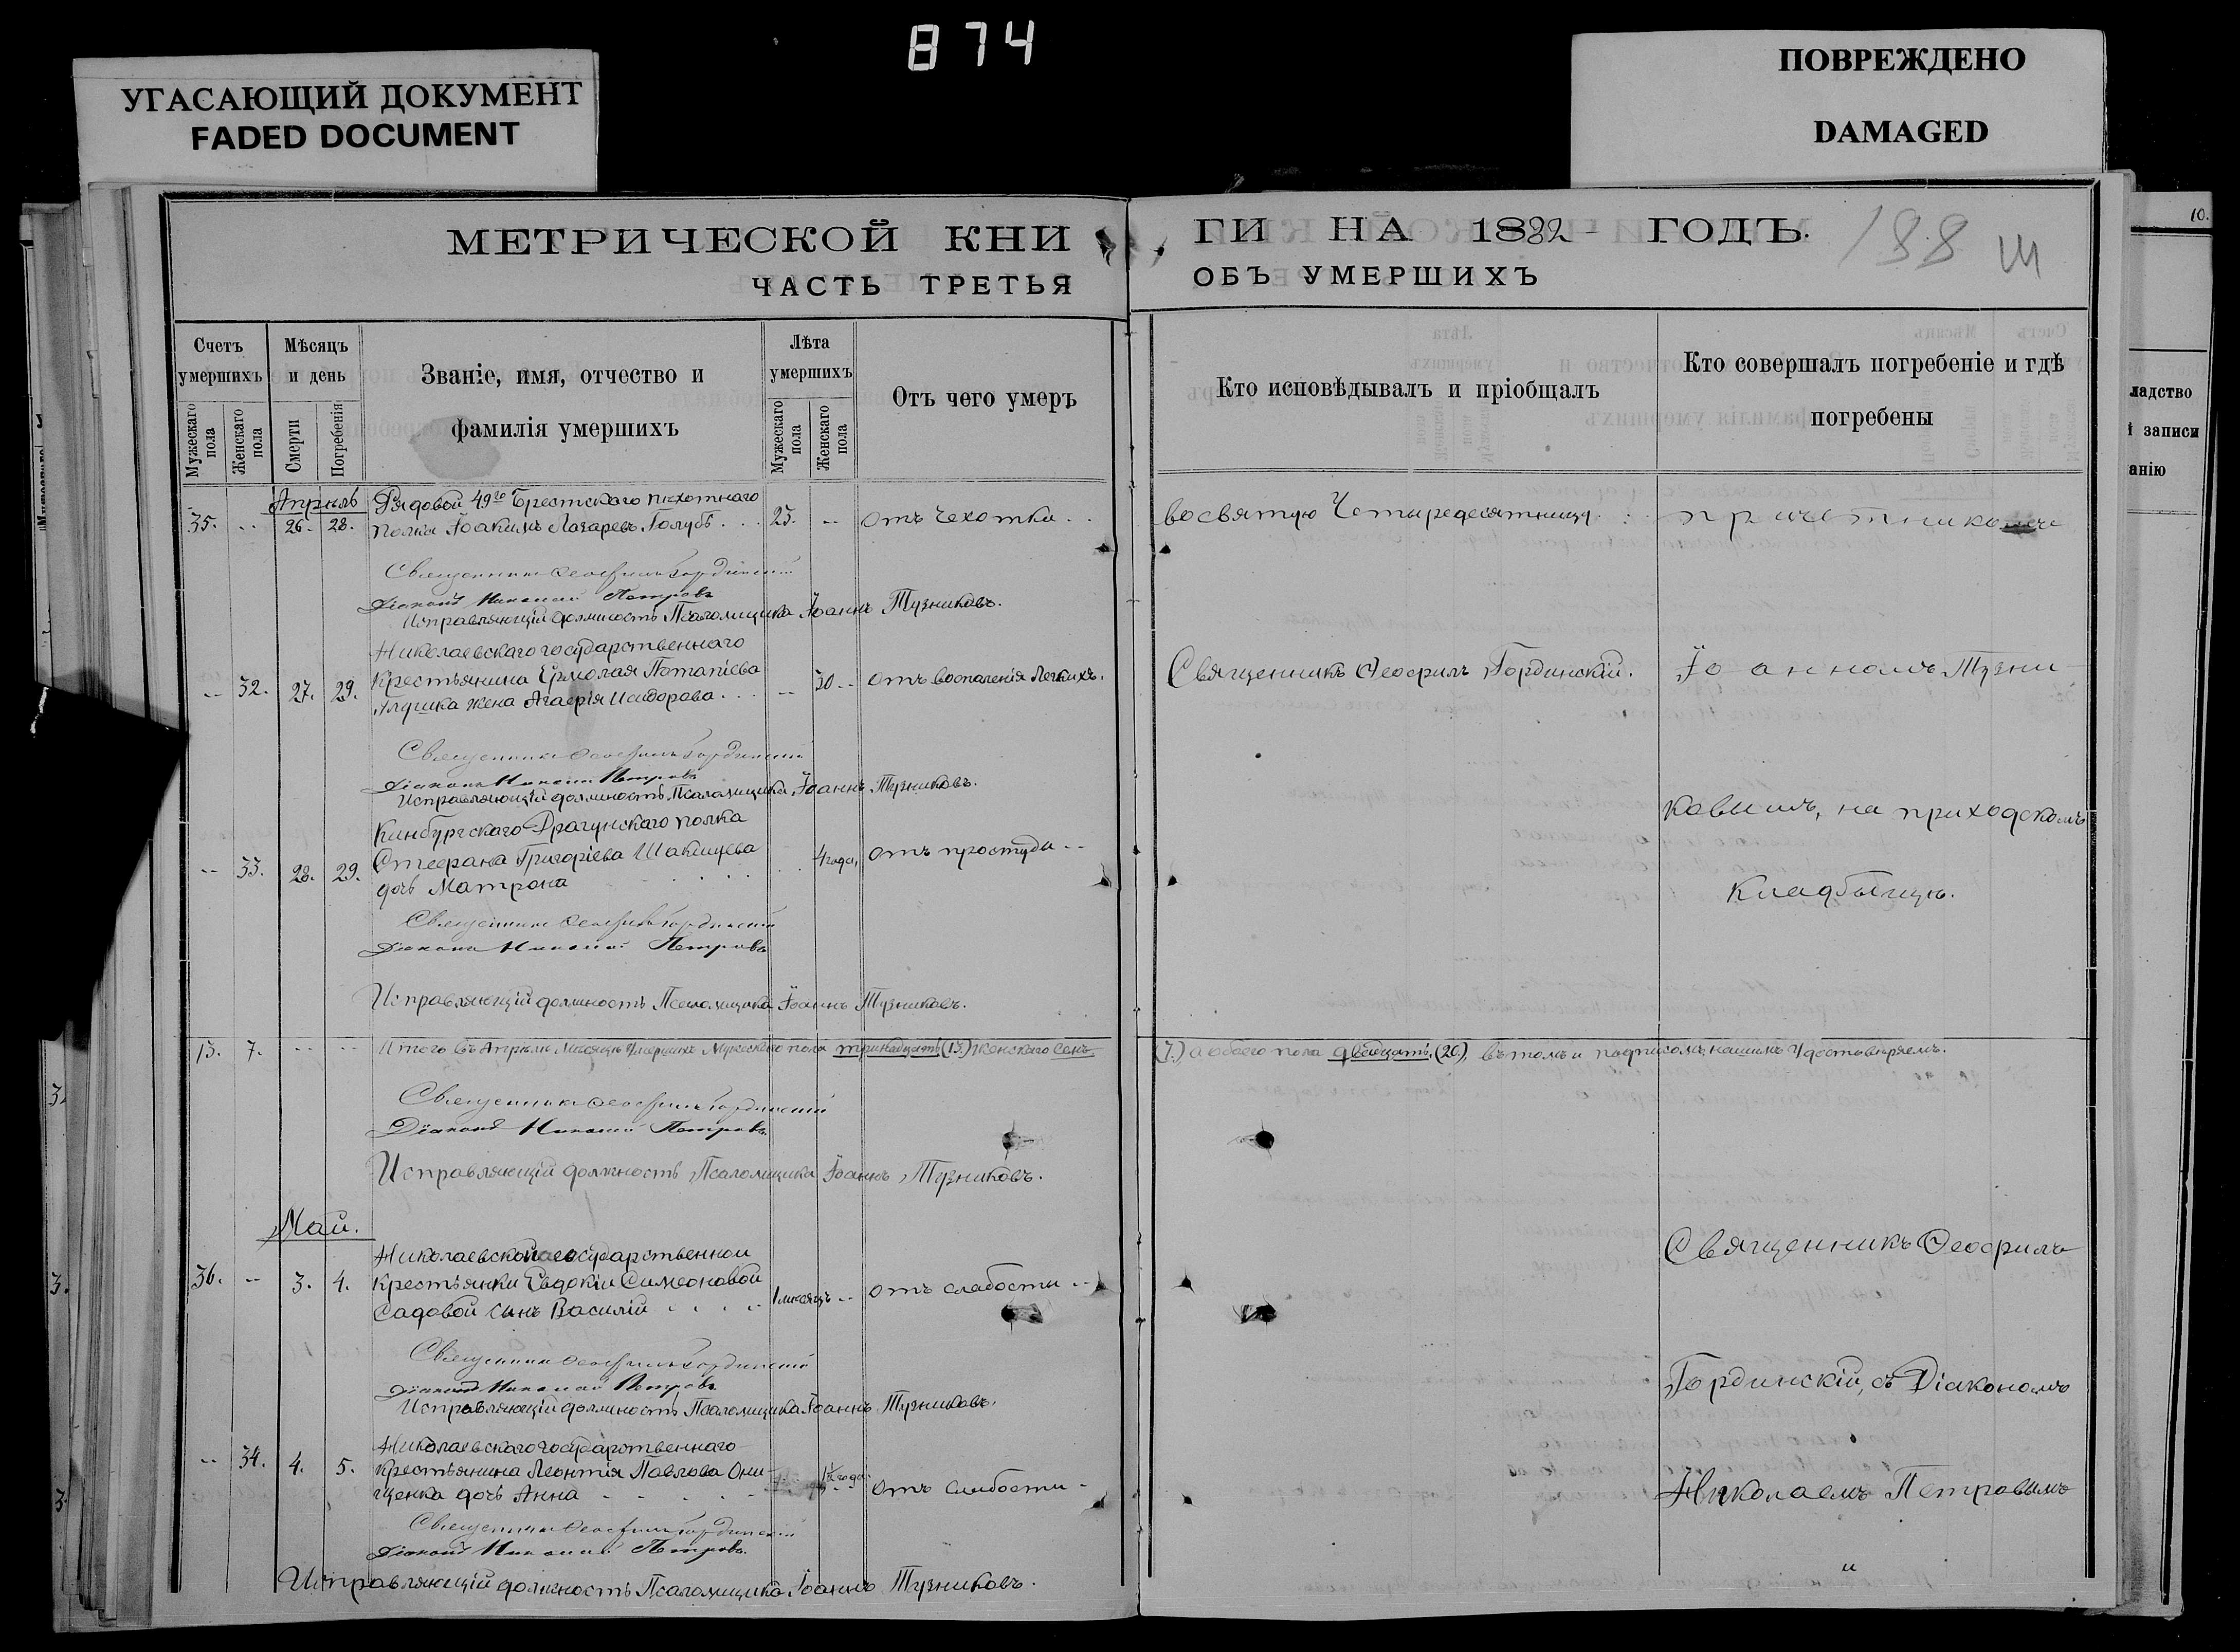 874
УГАСАЮЩИЙ ДОКУМЕНТ
FADED DOCUMENT
ПОВРЕЖДЕНО
DAMAGED
МЕТРИЧЕСКОЙ КНИ
ЧАСТЬ ТРЕТЬЯ
ГИ НА 1882 ГОДЪ.
ОБЪ УМЕРШИХЪ
188
Ш
10.
Счетъ умершихъ
Мужескаго пола
Женскаго пола
Мѣсяцъ и день
Смерти
Погребенія
Званіе, имя, отчество и
фамилія умершихъ
Лѣта умершихъ
Мужескаго пола
Женскаго пола
Отъ чего умеръ
Кто исповѣдывалъ и пріобщалъ
Кто совершалъ погребеніе и гдѣ
погребены
ладство
й записи
анію
Апрѣль
Рядовой 49го Брестскаго пѣхотнаго
35. -- 26. 28. полка Іоакимъ Лазаревъ Голубь . . . 25. -- отъ Чехотки . .
во святую Четыредесятницу . : причетникомъ
Священникъ Ѳеофилъ Гординскій
Діаконъ Николай Петровъ
Исправляющій должность Псаломщика Іоаннъ Тузниковъ.
Николаевскаго государственнаго
-- 32. 27. 29. Крестьянина Ермолая Потапіева -- 30 -- отъ воспаленія Легкихъ.
жена Агафія Исидорова . . .
Священникъ Ѳеофилъ Гординскій. Іоанномъ Тузни
Священникъ Ѳеофилъ Гординскій
Діаконъ Николай Петровъ
Исправляющій должность Псаломщика Іоаннъ Тузниковъ.
Кинбургскаго Драгунскаго полка
-- 33. 28. 29. Стефана Григоріева 4 года, отъ простуды --
дочь Матрона
ковымъ, на приходскомъ
кладбыщѣ.
Священникъ Ѳеофилъ Гординскій
Діаконъ Николай Петровъ
Исправляющій должность Псаломщика Іоаннъ Тузниковъ.
13. 7. -- -- Итого въ Апрѣлѣ Мѣсяцѣ Умершихъ Мужескаго пола тринадцать (13.) женскаго семь
(7.) а обоего пола двадцать, (20.) въ томъ и подписомъ нашимъ Удостовѣряемъ.
Священникъ Ѳеофилъ Гординскій
Діаконъ Николай Петровъ
Исправляющій должность Псаломщика Іоаннъ Тузниковъ.
Май.
Николаевской государственной
36. -- 3. 4. Крестьянки Евдокіи Симеоновой
Садовой сынъ Василій . . . . 1 мѣсяцъ -- отъ слабости --
Священникъ Ѳеофилъ
Священникъ Ѳеофилъ Гординскій
Діаконъ Николай Петровъ
Исправляющій должность Псаломщика Іоаннъ Тузниковъ.
Гординскій, съ Діакономъ
Николаевскаго государственнаго
-- 34. 4. 5. Крестьянина Леонтія Павлова Они-
щенка дочь Анна - - - - - года. отъ слабости -
Николаемъ Петровымъ
и
Священникъ Ѳеофилъ Гординскій
Діаконъ Николай Петровъ.
Исправляющій должность Псаломщика Іоаннъ Тузниковъ.